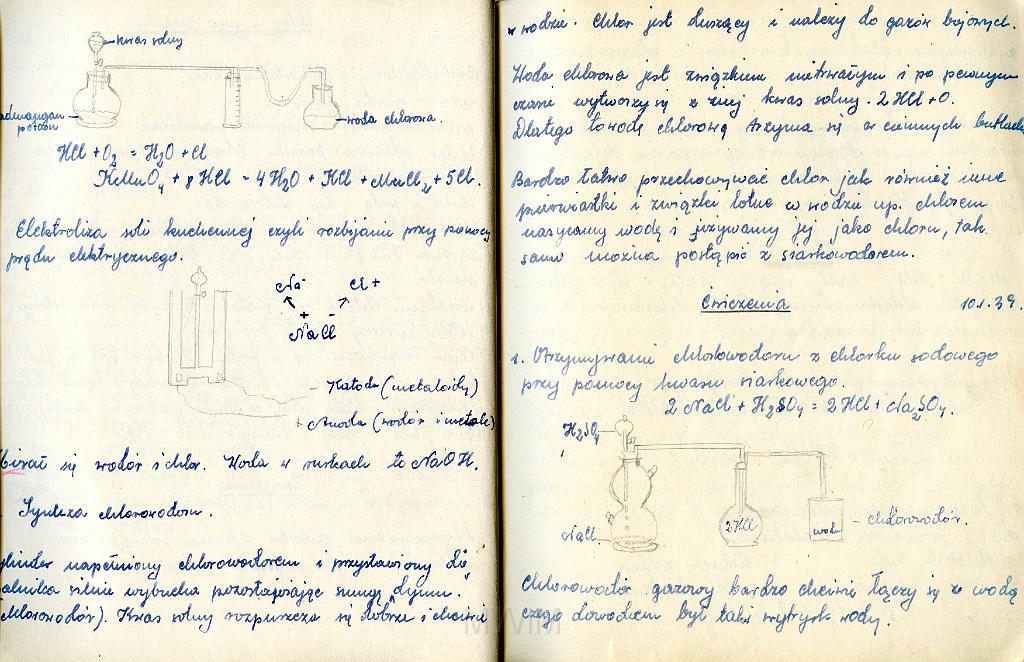 kwas solny
nadmangan
potasu
woda chlorowa.
HCl + O₂ = H₂O + Cl
KMnO₄ + 8 HCl = 4 H₂O + KCl + MnCl₂ + 5Cl.
Elektroliza soli kuchennej czyli rozbijanie przy pomocy
prądu elektrycznego.
Na⁻ Cl +
+ -
NaCl
- Katoda (metaloidy)
+ Anoda (wodór i metale)
bierał się wodór i chlor. Woda w rurkach to NaOH.
Synteza chlorowodoru.
cylinder napełniony chlorowodorem i przystawiony do
palnika silnie wybucha pozostawiając smugę "dymu.
chlorowodór). Kwas solny rozpuszcza się dobrze i chętnie
w wodzie. Chlor jest duszący i należy do gazów bojowych.
Woda chlorowa jest związkiem nietrwałym i po pewnym
czasie wytworzy się z niej kwas solny. 2 HCl + O.
Dlatego to wodę chlorową trzyma się w ciemnych butlach
Bardzo łatwo przechowywać chlor jak również inne
pierwiastki i związki lotne w wodzie np. chlorem
nasycamy wodę i używamy jej jako chloru, tak
samo można postąpić z siarkowodorem.
Ćwiczenia 10.1.39.
1. Otrzymywanie chlorowodoru z chlorku sodowego
przy pomocy kwasu siarkowego.
2 NaCl + H₂SO₄ = 2 HCl + Na₂SO₄.
H₂SO₄
NaCl
2 HCl
woda
- chlorowodór.
Chlorowodór gazowy bardzo chętnie łączy się z wodą
czego dowodem był taki wytrysk wody.